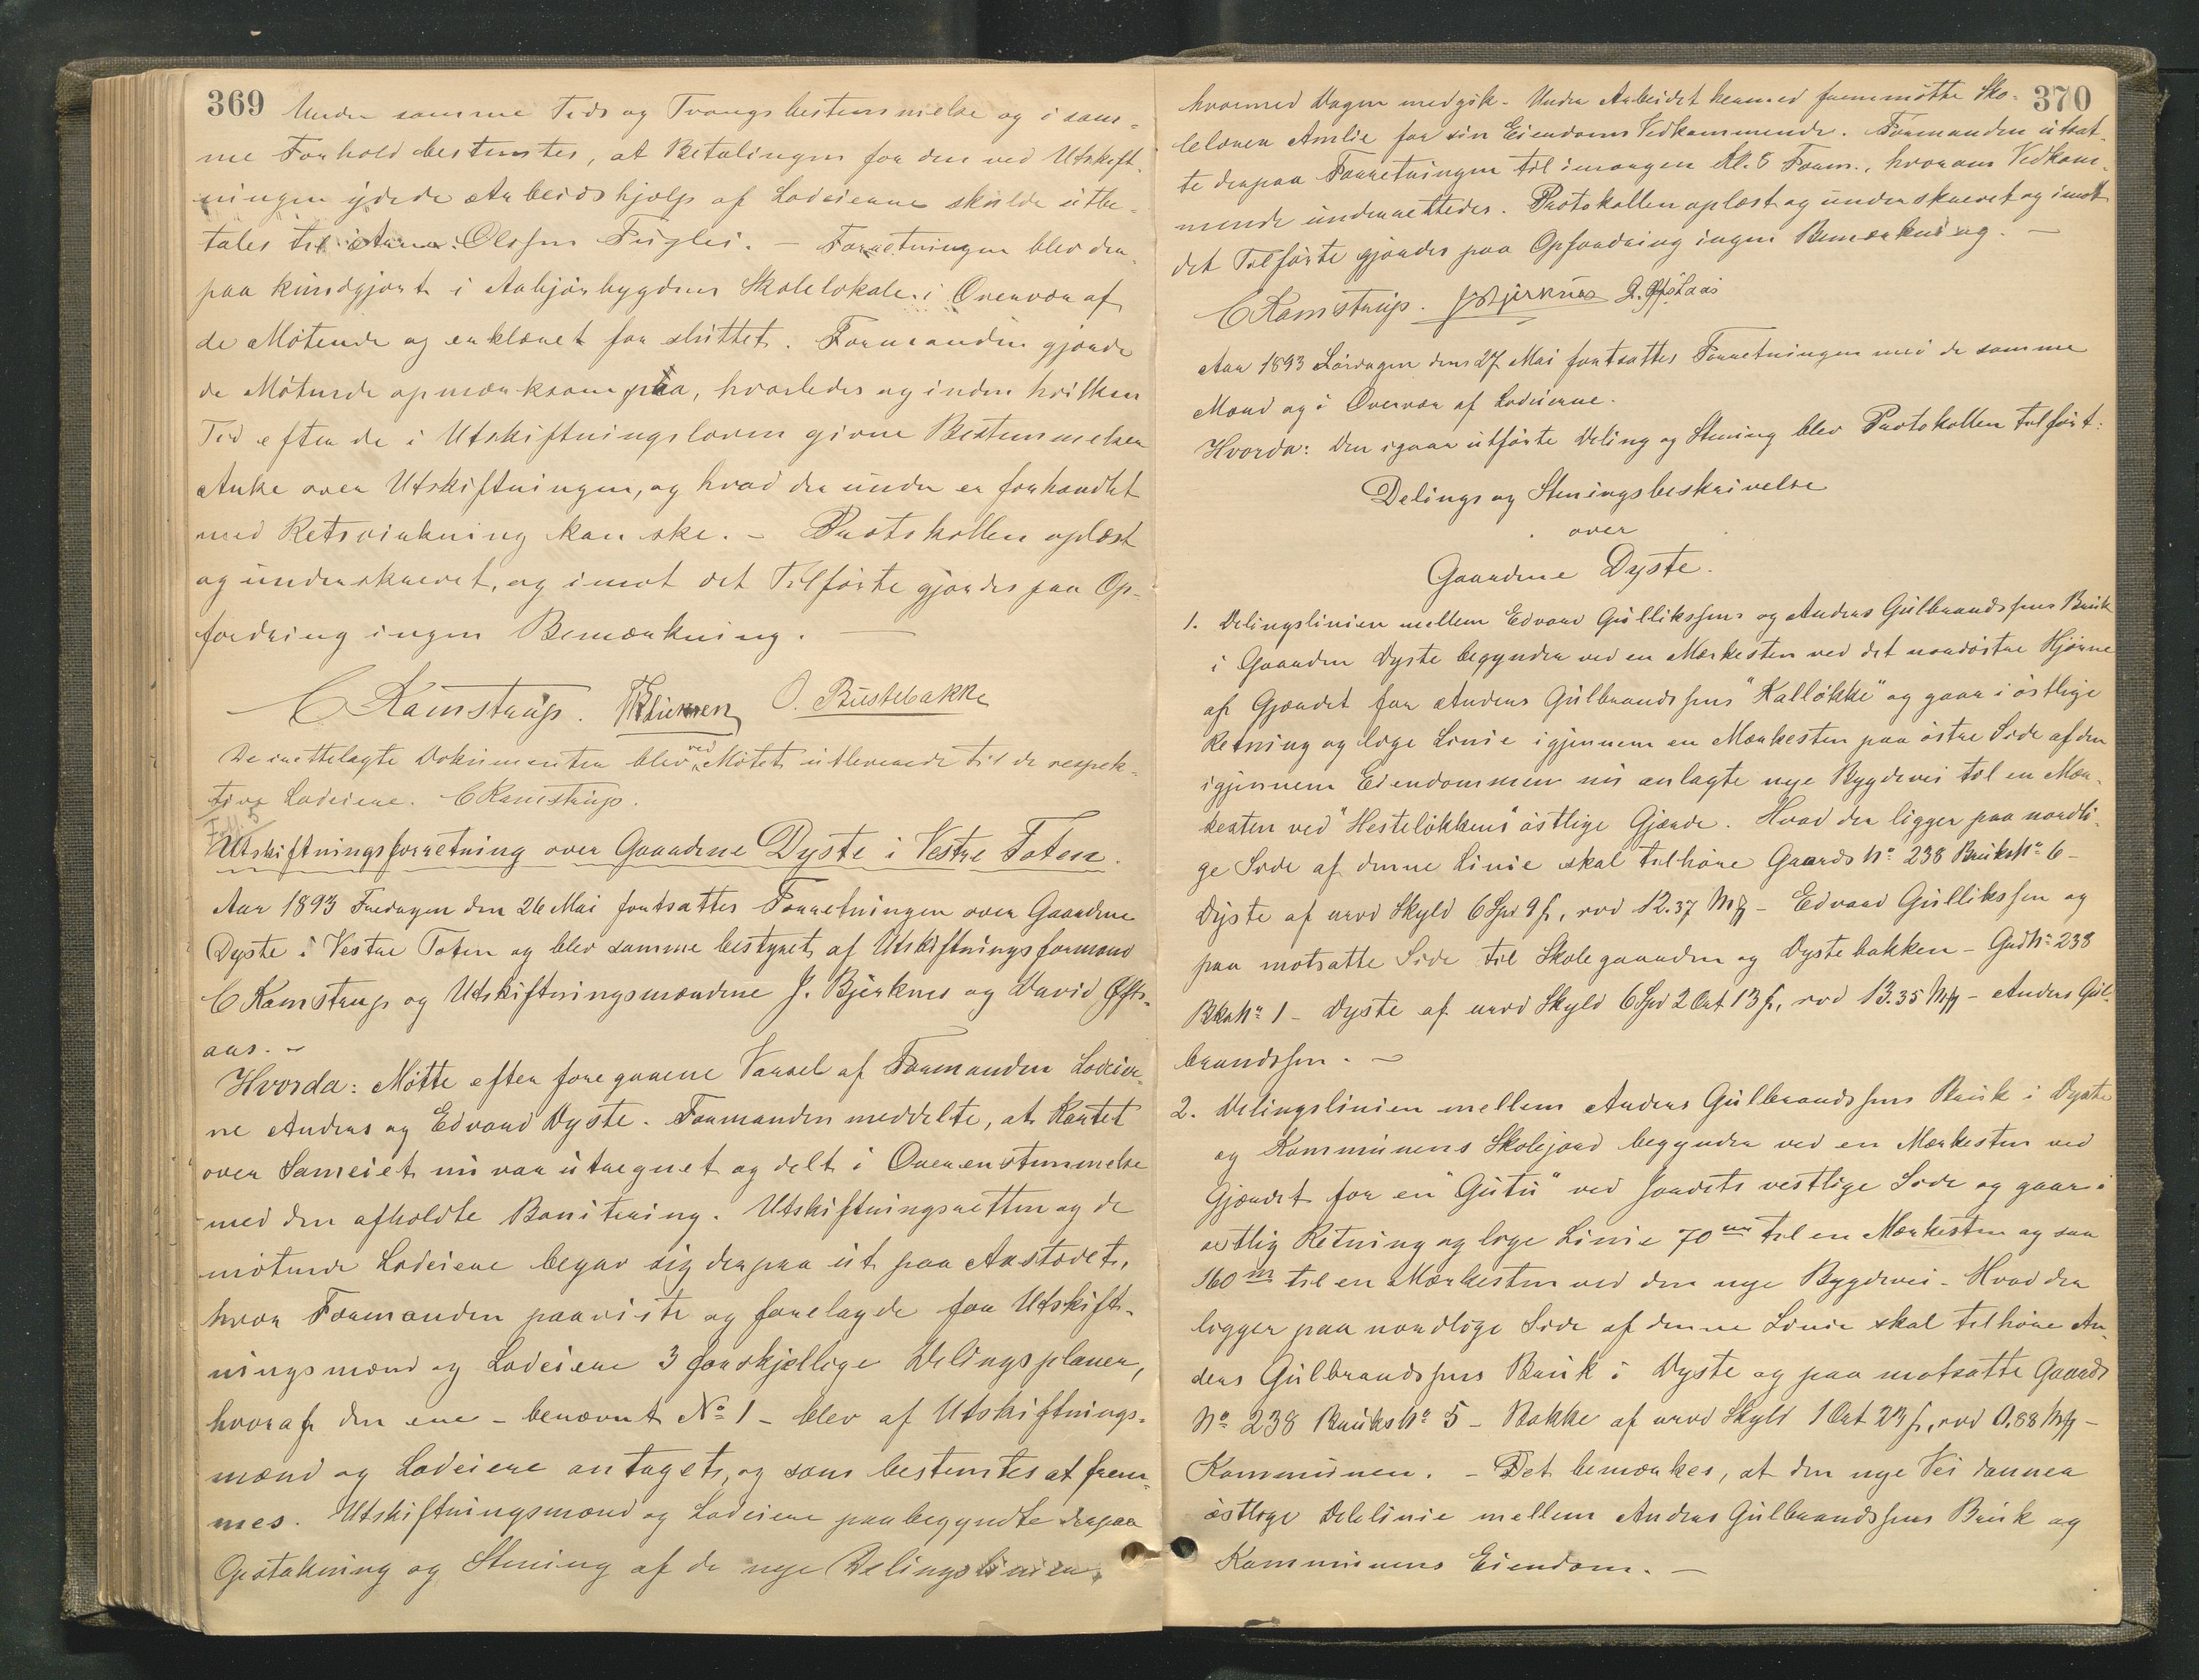 369
Under samme Tids og Tvangsbestemmelse og i sam-
me Forhold bestemtes, at Betalingen for den ved Utskift-
ningen ydede Arbeidshjælp af Lodeierne skulde utbe-
tales til Olsen Fuglei. – Forretningen blev der-
paa kundgjort i Aabjørbygdens Skolelokale i Overvær af
de Møtende og erklæret for sluttet. Formanden gjorde
de Møtende opmærksom paa, hvorledes og inden hvilken
Tid efter de i Utskiftningsloven givne Bestemmelser
Anke over Utskiftningen, og hvad der under er forhandlet
med Retsvirkning kan ske. – Protokollen oplæst
og underskrevet, og imot det Tilførte gjordes paa Op-
fordring ingen Bemærkning. —
C Kamstrup. O. Bustebakke
De irettelagte Dokumenter blev ved Møtet utleverede til de respek-
tive Lodeiere. C Kamstrup.
Utskiftningsforretning over Gaardene Dyste i Vestre Toten.
Aar 1893 Fredagen den 26 Mai fortsattes Forretningen over Gaardene
Dyste i Vestre Toten og blev samme bestyret af Utskiftningsformand
C Kamstrup og Utskiftningsmændene J. Bjerknes og David Øfts-
aas. –
Hvorda: Møtte efter foregaaene Varsel af Formanden Lodeier-
ne Anders og Edvard Dyste. Formanden meddelte, at Kartet
over Sameiet nu var utregnet og delt i Overensstemmelse
med den afholdte Bonitering. Utskiftningsretten og de
møtende Lodeiere begav sig derpaa ut paa Aastedet,
hvor Formanden paaviste og forelagde for Utskift-
ningsmænd og Lodeiere 3 forskjellige Delingsplaner,
hvoraf den ene – benævnt No 1 – blev af Utskiftnings-
mænd og Lodeiere antaget, og som bestemtes at frem-
mes. Utskiftningsmænd og Lodeiere paabegyndte derpaa
Opstakning og Stening af de nye Delingslinier,
370
hvormed Dagen medgik. Under Arbeidet hermed fremmøtte Sko-
lelærer Amlie for sin Eiendoms Vedkommende. Formanden utsat-
te derpaa Forretningen til imorgen Kl. 8 Form., hvorom Vedkom-
mende underrettedes. Protokollen oplæst og underskrevet og imot
det Tilførte gjordes paa Opfordring ingen Bemærkning. —
C Kamstrup. J Bjerknes D. Øfstaas
Aar 1893 Lørdagen den 27 Mai fortsattes Forretningen med de samme
Mænd og i Overvær af Lodeierne.
Hvorda: Den igaar utførte Deling og Stening blev Protokollen tilført:
Delings og Steningsbeskrivelse
over
Gaardene Dyste.
1. Delingslinien mellem Edvard Gullikssens og Anders Gulbrandssens Bruk
i Gaarden Dyste begynder ved en Mærkesten ved det nordøstre Hjørne
af Gjærdet for Anders Gulbrandssens "Kalløkke" og gaar i østlige
Retning og lige Linie igjennem en Mærkesten paa østre Side af den
igjennem Eiendommen nu anlagte nye Bygdevei til en Mær-
kesten ved "Hesteløkkens" østlige Gjærde. Hvad der ligger paa nordli-
ge Side af denne Linie skal tilhøre Gaards No 238 Bruks No 6 –
Dyste af urvd Skyld 6 Spd 9 ſ, rvd 12.37 Mk – Edvard Gullikssen og
paa motsatte Side til Skolegaarden og Dystebakken – Grd No 238
Brks No 1 – Dyste af urvd Skyld 6 Spd 2 Ort 13 ſ, rvd 13.35 Mk – Anders Gul-
brandssen. –
2. Delingslinien mellem Anders Gulbrandssens Bruk i Dyste
og Kommunens Skolejord begynder ved en Mærkesten ved
Gjærdet for en "Gutu" ved Jordets vestlige Side og gaar i
østlig Retning og lige Linie 70 m til en Mærkesten og saa
160 m til en Mærkesten ved den nye Bygdevei – Hvad der
ligger paa nordlige Side af denne Linie skal tilhøre An-
ders Gulbrandssens Bruk i Dyste og paa motsatte Gaards
No 238 Bruks No 5 – Bakke af urvd Skyld 1 Ort 23 ſ, rvd 0,88 Mk –
Kommunen. – Det bemærkes, at den nye Vei danner
østlige Delelinie mellem Anders Gulbrandssens Bruk og
Kommunens Eiendom. —